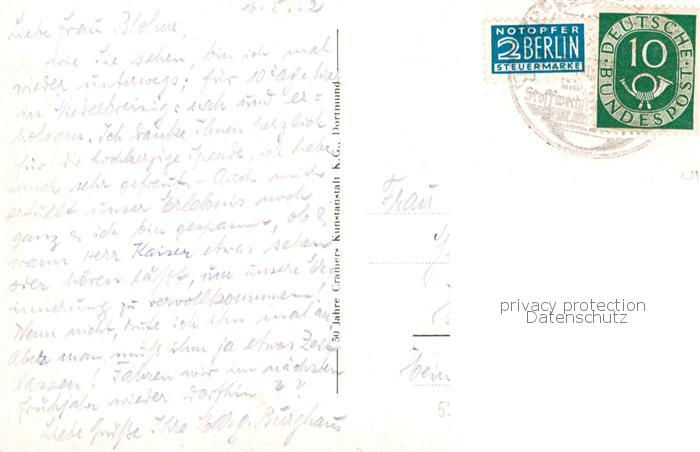 Liebe Frau Blohm,
wie Sie sehen, bin ich mal
wieder unterwegs; für 10 Tage hier
in Niederbreisig: nah und er-
holsam. Ich danke Ihnen herzlich
für die hochherzige Spende, ich habe
mich sehr gefreut. – Auch mich
erfüllt unser Erlebnis noch
ganz & ich bin gespannt, ob &
wann Herr Kaiser etwas sehen
oder hören läßt, um unsere Er-
innerung zu vervollkommnen!
Wenn nicht, rufe ich ihn mal an
Aber man muß ihm ja etwas Zeit
lassen! Fahren wir im nächsten
Frühjahr wieder dorthin??
Liebe Grüße Ihre Burghaus
50 Jahre Cramers Kunstanstalt K.G., Dortmund
NOTOPFER
2 BERLIN
STEUERMARKE
DEUTSCHE
10
BUNDESPOST
Frau
privacy protection
Datenschutz